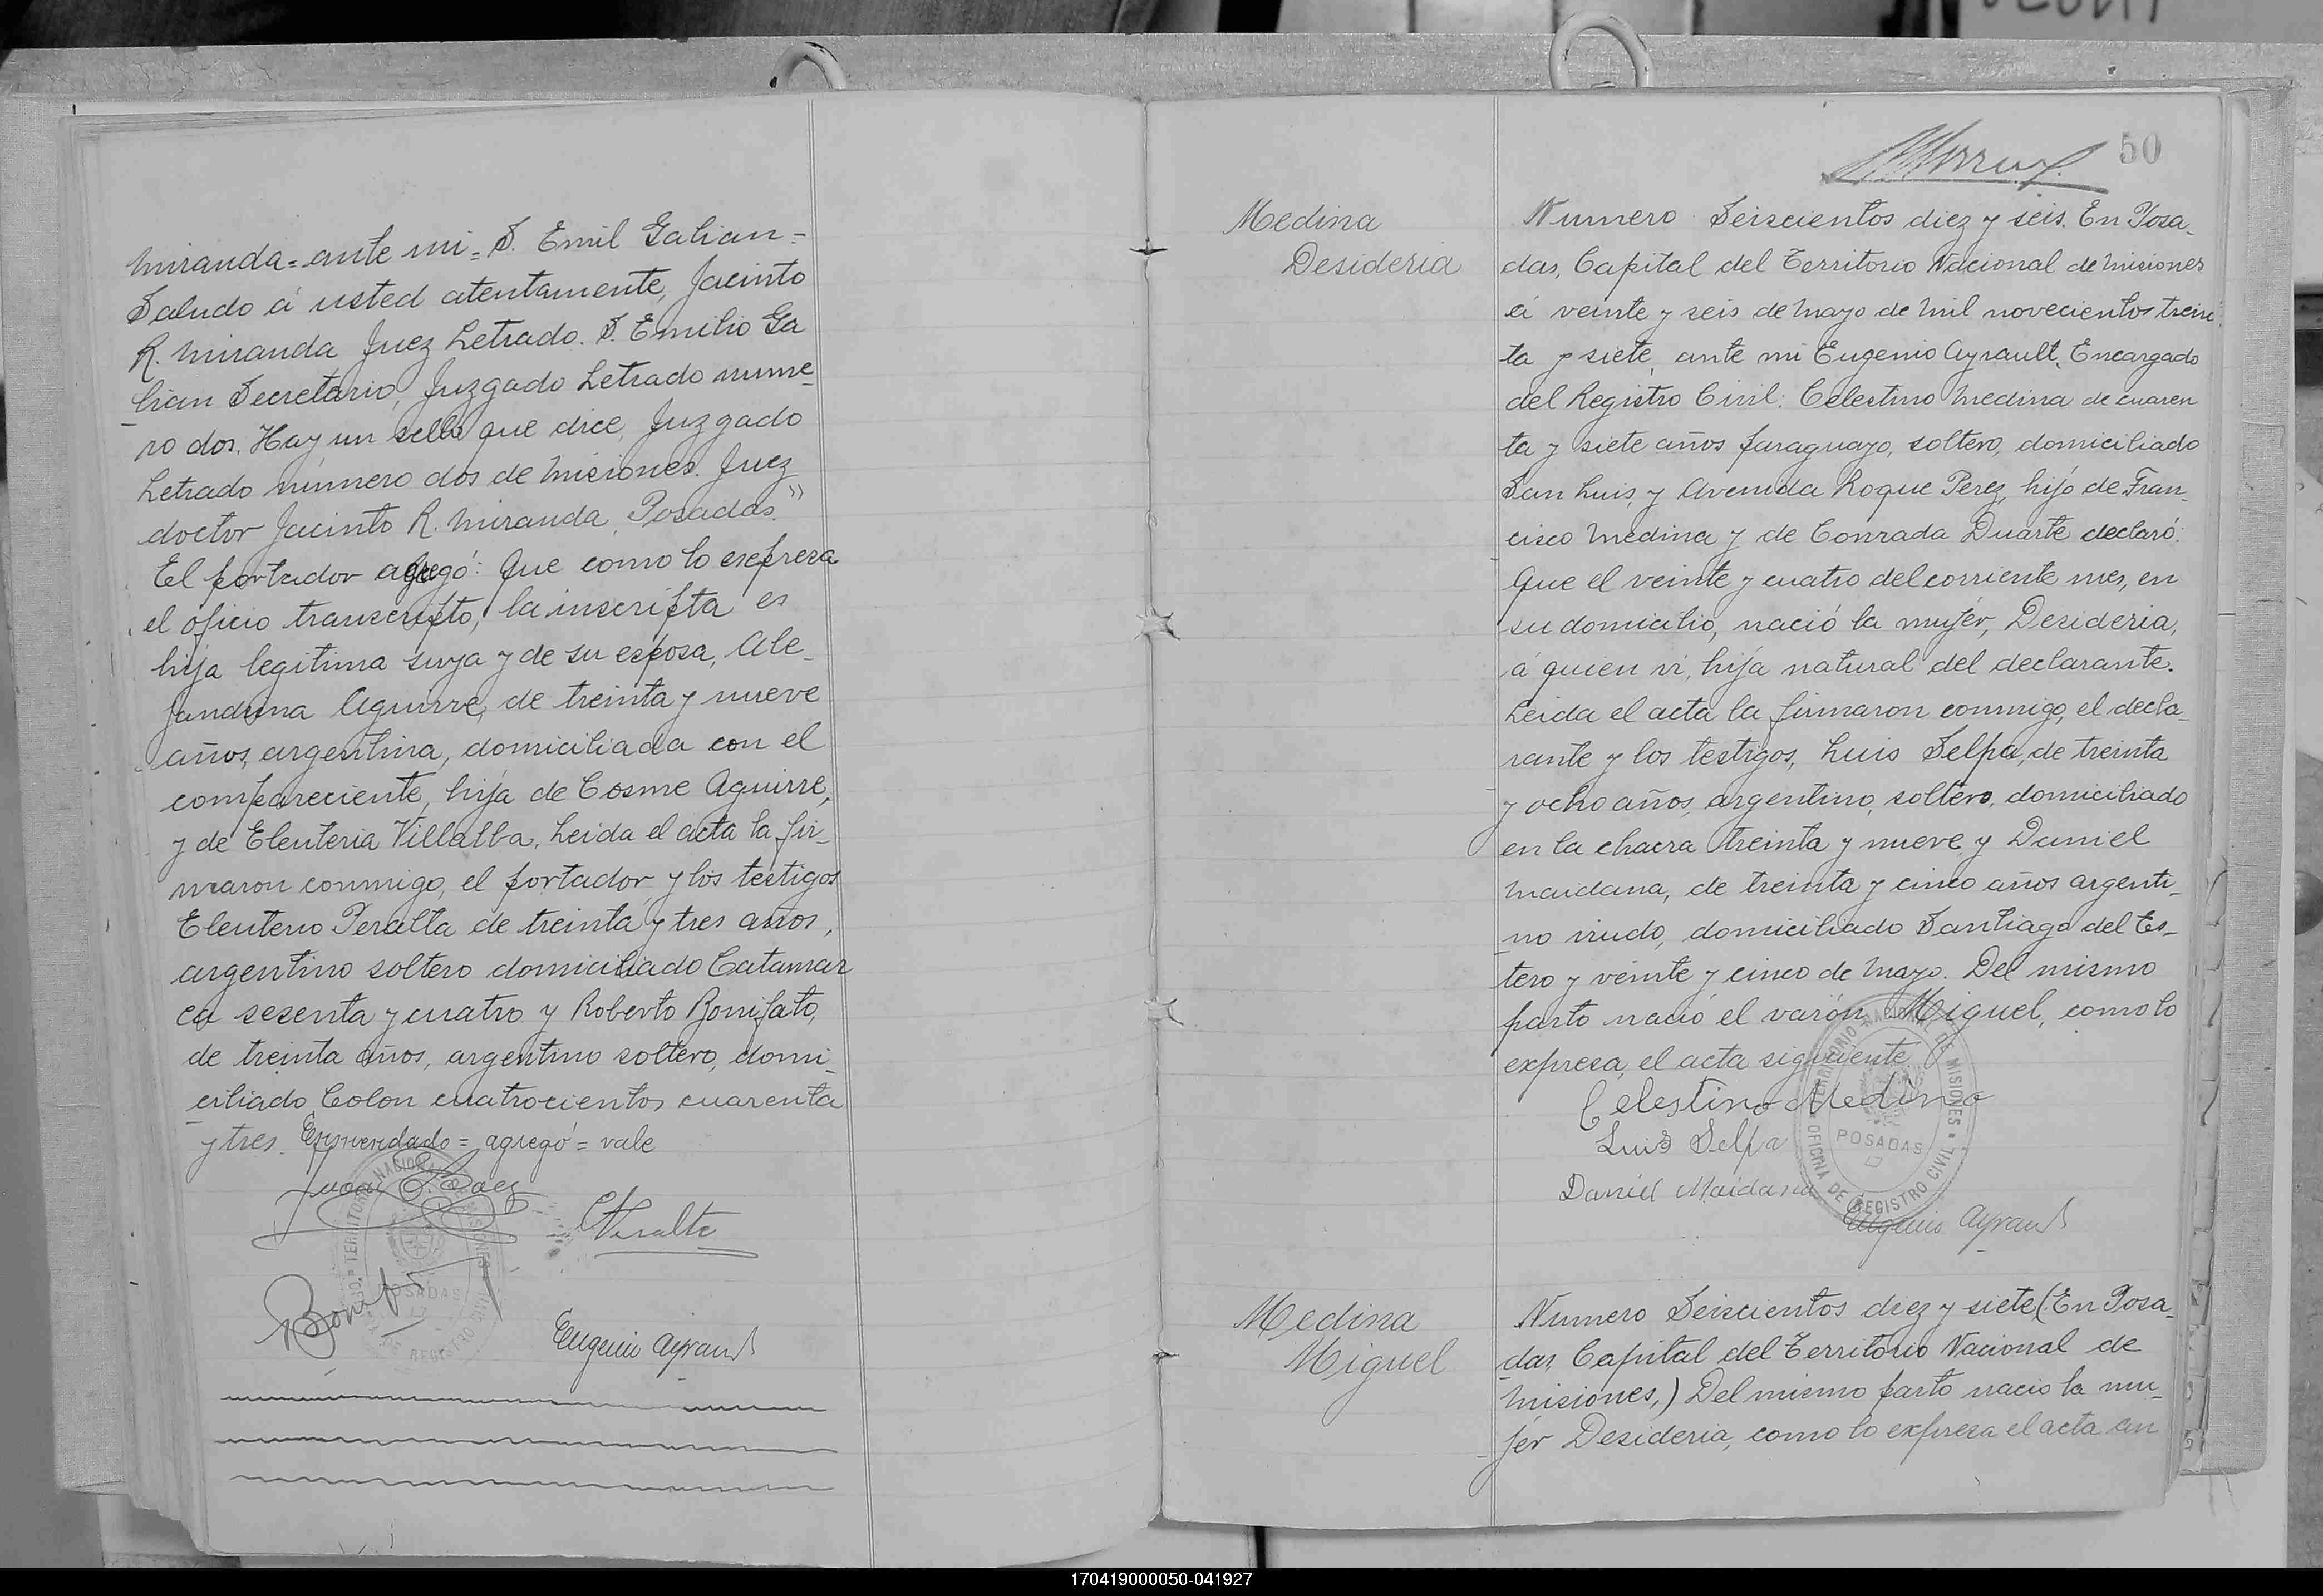 Miranda = ante mi = S. Emil Galian =
Saludo á usted atentamente, Jacinto
R. Miranda Juez Letrado. S. Emilio Ga
lian Secretario, Juzgado Letrado nume_
ro dos. Hay un sello que dice, Juzgado
Letrado número dos de Misiones. Juez
doctor Jacinto R. Miranda, Posadas."
El portador agregó: Que como lo expresa
el oficio transcripto, la inscripta es
hija legitima suya y de su esposa, Ale_
jandrina Aguirre, de treinta y nueve
años, argentina, domiciliada con el
compareciente, hija de Cosme Aguirre,
y de Eleuteria Villalba. Leida el acta la fir_
maron conmigo, el portador y los testigos
Eleuterio Peralta de treinta y tres años,
argentino soltero domiciliado Catamar
ca sesenta y cuatro y Roberto Bonifato,
de treinta años, argentino soltero, domi_
ciliado Colon cuatrocientos cuarenta
y tres. Enmendado = agregó = vale
Juan Baez
Peralta
Eugenio Ayrault
POSADAS
50
Medina
Desideria
Numero Seiscientos diez y seis. En Posa_
das, Capital del Territorio Nacional de Misiones
á veinte y seis de Mayo de mil novecientos trein
ta y siete, ante mi Eugenio Ayrault, Encargado
del Registro Civil: Celestino Medina de cuaren
ta y siete años paraguayo, soltero, domiciliado
San Luis, y Avenida Roque Perez, hijo de Fran_
cisco Medina y de Conrada Duarte declaró:
Que el veinte y cuatro del corriente mes, en
su domicilio, nació la mujér, Desideria,
á quien vi, hija natural del declarante.
Leida el acta la firmaron conmigo, el decla_
rante y los testigos, Luis Selpa, de treinta
y ocho años, argentino, soltero, domiciliado
en la chacra treinta y nueve y Daniel
Maidana, de treinta y cinco años argenti_
no viudo, domiciliado Santiago del Es_
tero y veinte y cinco de Mayo. Del mismo
parto nació el varón Miguel, como lo
expresa, el acta siguiente.
Celestino Medina
Luis Selpa
Daniel Maidana
Eugenio Ayrault
TERRITORIO NACIONAL DE MISIONES
OFICINA DE REGISTRO CIVIL
POSADAS
Medina
Miguel
Numero Seiscientos diez y siete (En Posa_
das, Capital del Territorio Nacional de
Misiones,) Del mismo parto nacio la mu_
jér Desideria, como lo expresa el acta an
170419000050-041927